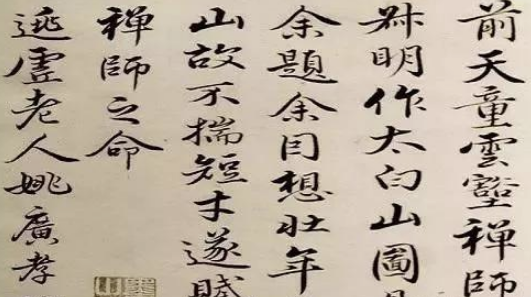 前天童雲壑禪師
叔明作太白山圖
余題余因想壯年
山故不揣短才遂賦
禪師之命
逃虛老人姚廣孝